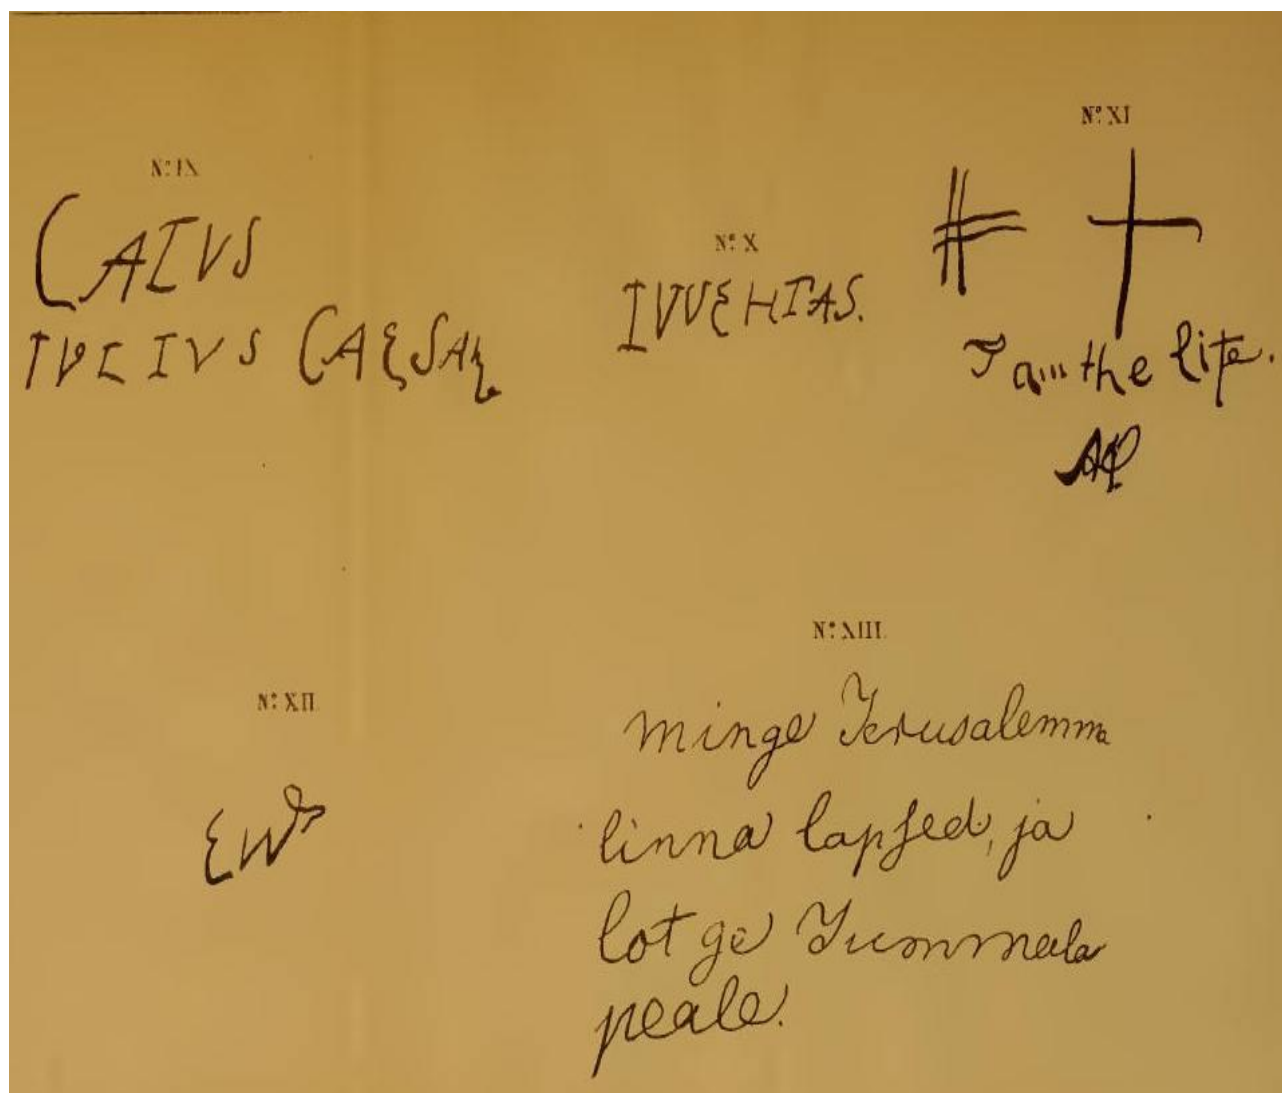 Nº IX
CAIVS
IVLIVS CAESAR
Nº X
IVVEHTAS.
Nº XI
I am the life.
Nº XII
Nº XIII.
minge Jerusalemma
linna lapsed, ja
lotge Jummala
peale.